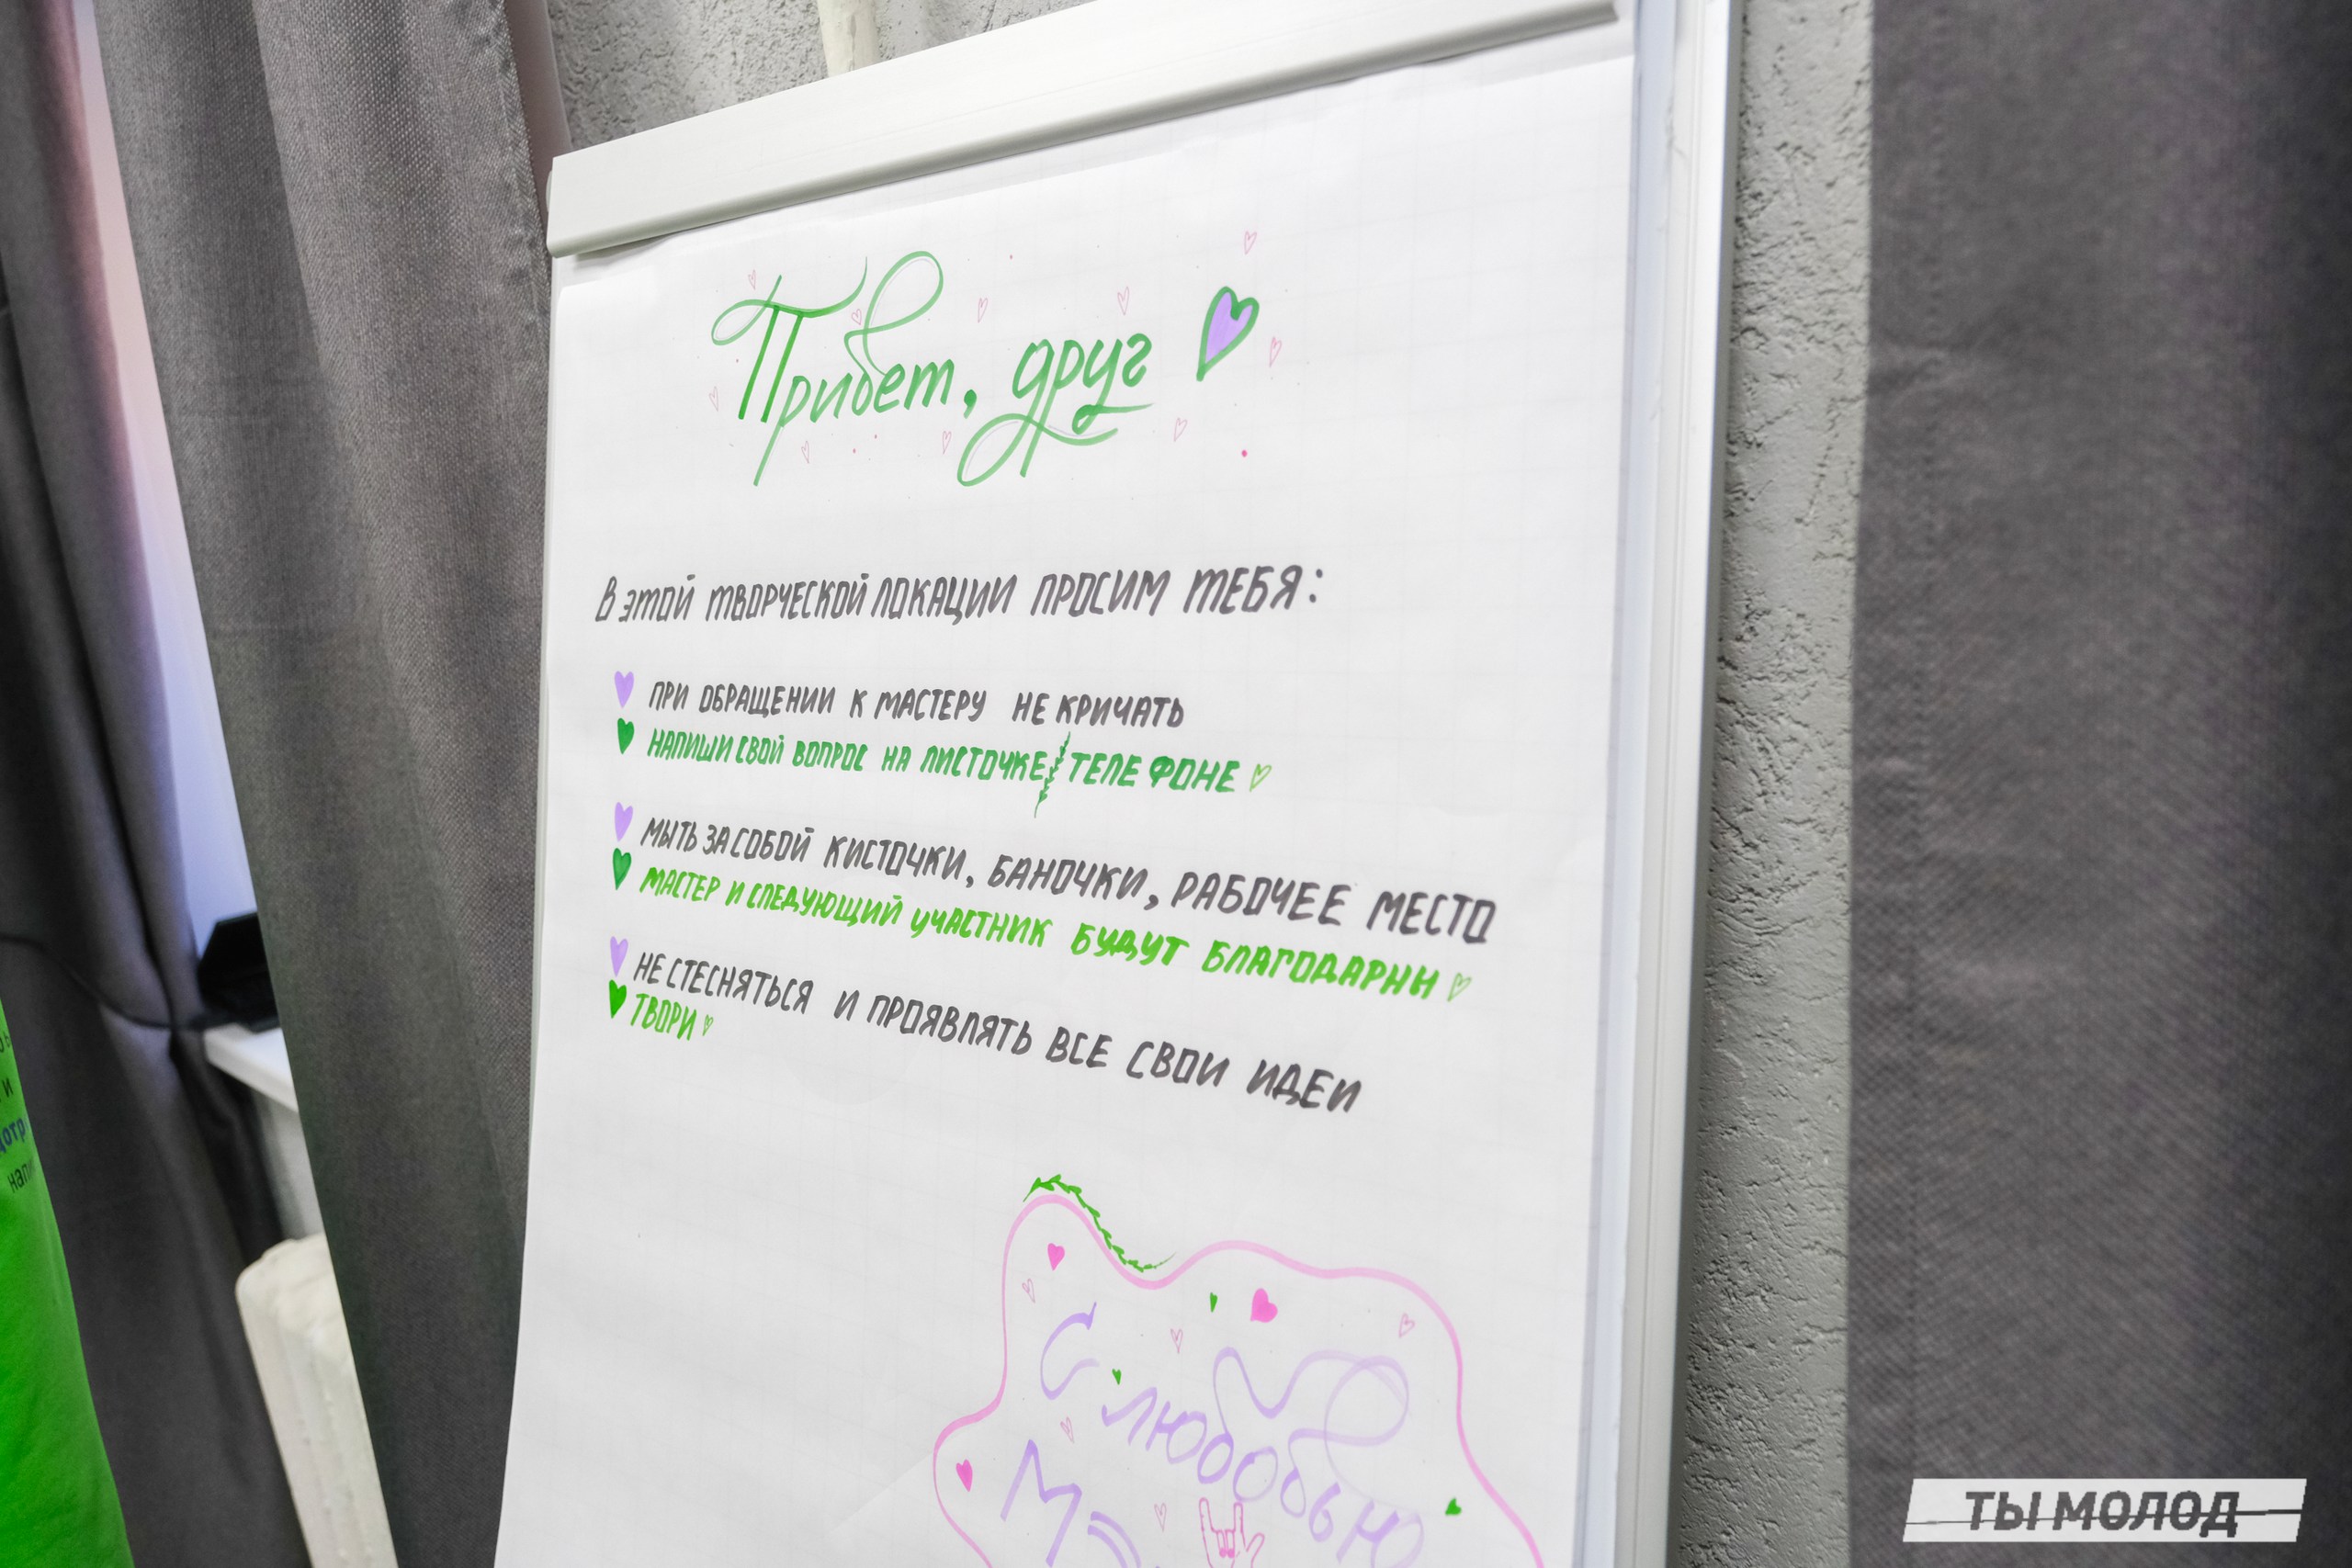 Привет, друг
В этой творческой локации просим тебя:
ПРИ ОБРАЩЕНИИ К МАСТЕРУ НЕ КРИЧАТЬ
НАПИШИ СВОЙ ВОПРОС НА ЛИСТОЧКЕ/ТЕЛЕФОНЕ
МЫТЬ ЗА СОБОЙ КИСТОЧКИ, БАНОЧКИ, РАБОЧЕЕ МЕСТО
МАСТЕР И СЛЕДУЮЩИЙ УЧАСТНИК БУДУТ БЛАГОДАРНЫ
НЕ СТЕСНЯТЬСЯ И ПРОЯВЛЯТЬ ВСЕ СВОИ ИДЕИ
ТВОРИ
С любовью
ТЫ МОЛОД